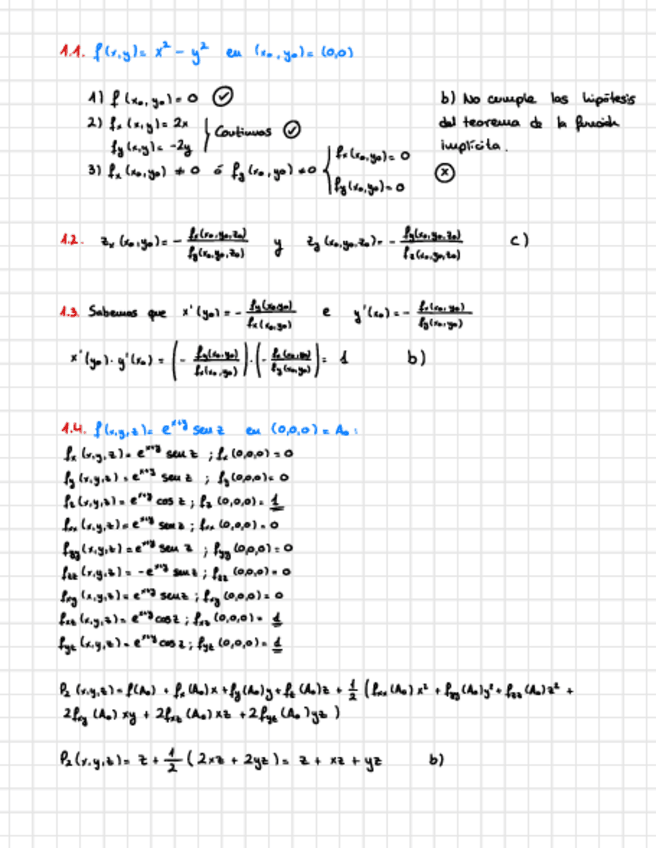 1.1. f(x,y) = x² - y² en (x₀, y₀) = (0,0)
1) f(x₀, y₀) = 0 ✓
2) fx(x,y) = 2x
fy(x,y) = -2y } Continuas ✓
3) fx(x₀,y₀) ≠ 0 ó fy(x₀,y₀) ≠ 0 { fx(x₀,y₀) = 0
fy(x₀,y₀) = 0
b) No cumple las hipótesis
del teorema de la función
implícita.
ⓧ
1.2. zx(x₀,y₀) = - fx(x₀,y₀,z₀)/fz(x₀,y₀,z₀) y zy(x₀,y₀,z₀) = - fy(x₀,y₀,z₀)/fz(x₀,y₀,z₀) c)
1.3. Sabemos que x'(y₀) = - fy(x₀,y₀)/fx(x₀,y₀) e y'(x₀) = - fx(x₀,y₀)/fy(x₀,y₀)
x'(y₀) · y'(x₀) = (- fy(x₀,y₀)/fx(x₀,y₀)) · (- fx(x₀,y₀)/fy(x₀,y₀)) = 1 b)
1.4. f(x,y,z) = e^(x+y) sen z en (0,0,0) = A₀:
fx(x,y,z) = e^(x+y) sen z ; fx(0,0,0) = 0
fy(x,y,z) = e^(x+y) sen z ; fy(0,0,0) = 0
fz(x,y,z) = e^(x+y) cos z ; fz(0,0,0) = 1
fxx(x,y,z) = e^(x+y) sen z ; fxx(0,0,0) = 0
fyy(x,y,z) = e^(x+y) sen z ; fyy(0,0,0) = 0
fzz(x,y,z) = -e^(x+y) sen z ; fzz(0,0,0) = 0
fxy(x,y,z) = e^(x+y) sen z ; fxy(0,0,0) = 0
fxz(x,y,z) = e^(x+y) cos z ; fxz(0,0,0) = 1
fyz(x,y,z) = e^(x+y) cos z ; fyz(0,0,0) = 1
P₂(x,y,z) = f(A₀) + fx(A₀)x + fy(A₀)y + fz(A₀)z + 1/2 (fxx(A₀)x² + fyy(A₀)y² + fzz(A₀)z² +
2fxy(A₀)xy + 2fxz(A₀)xz + 2fyz(A₀)yz)
P₂(x,y,z) = z + 1/2 (2xz + 2yz) = z + xz + yz b)